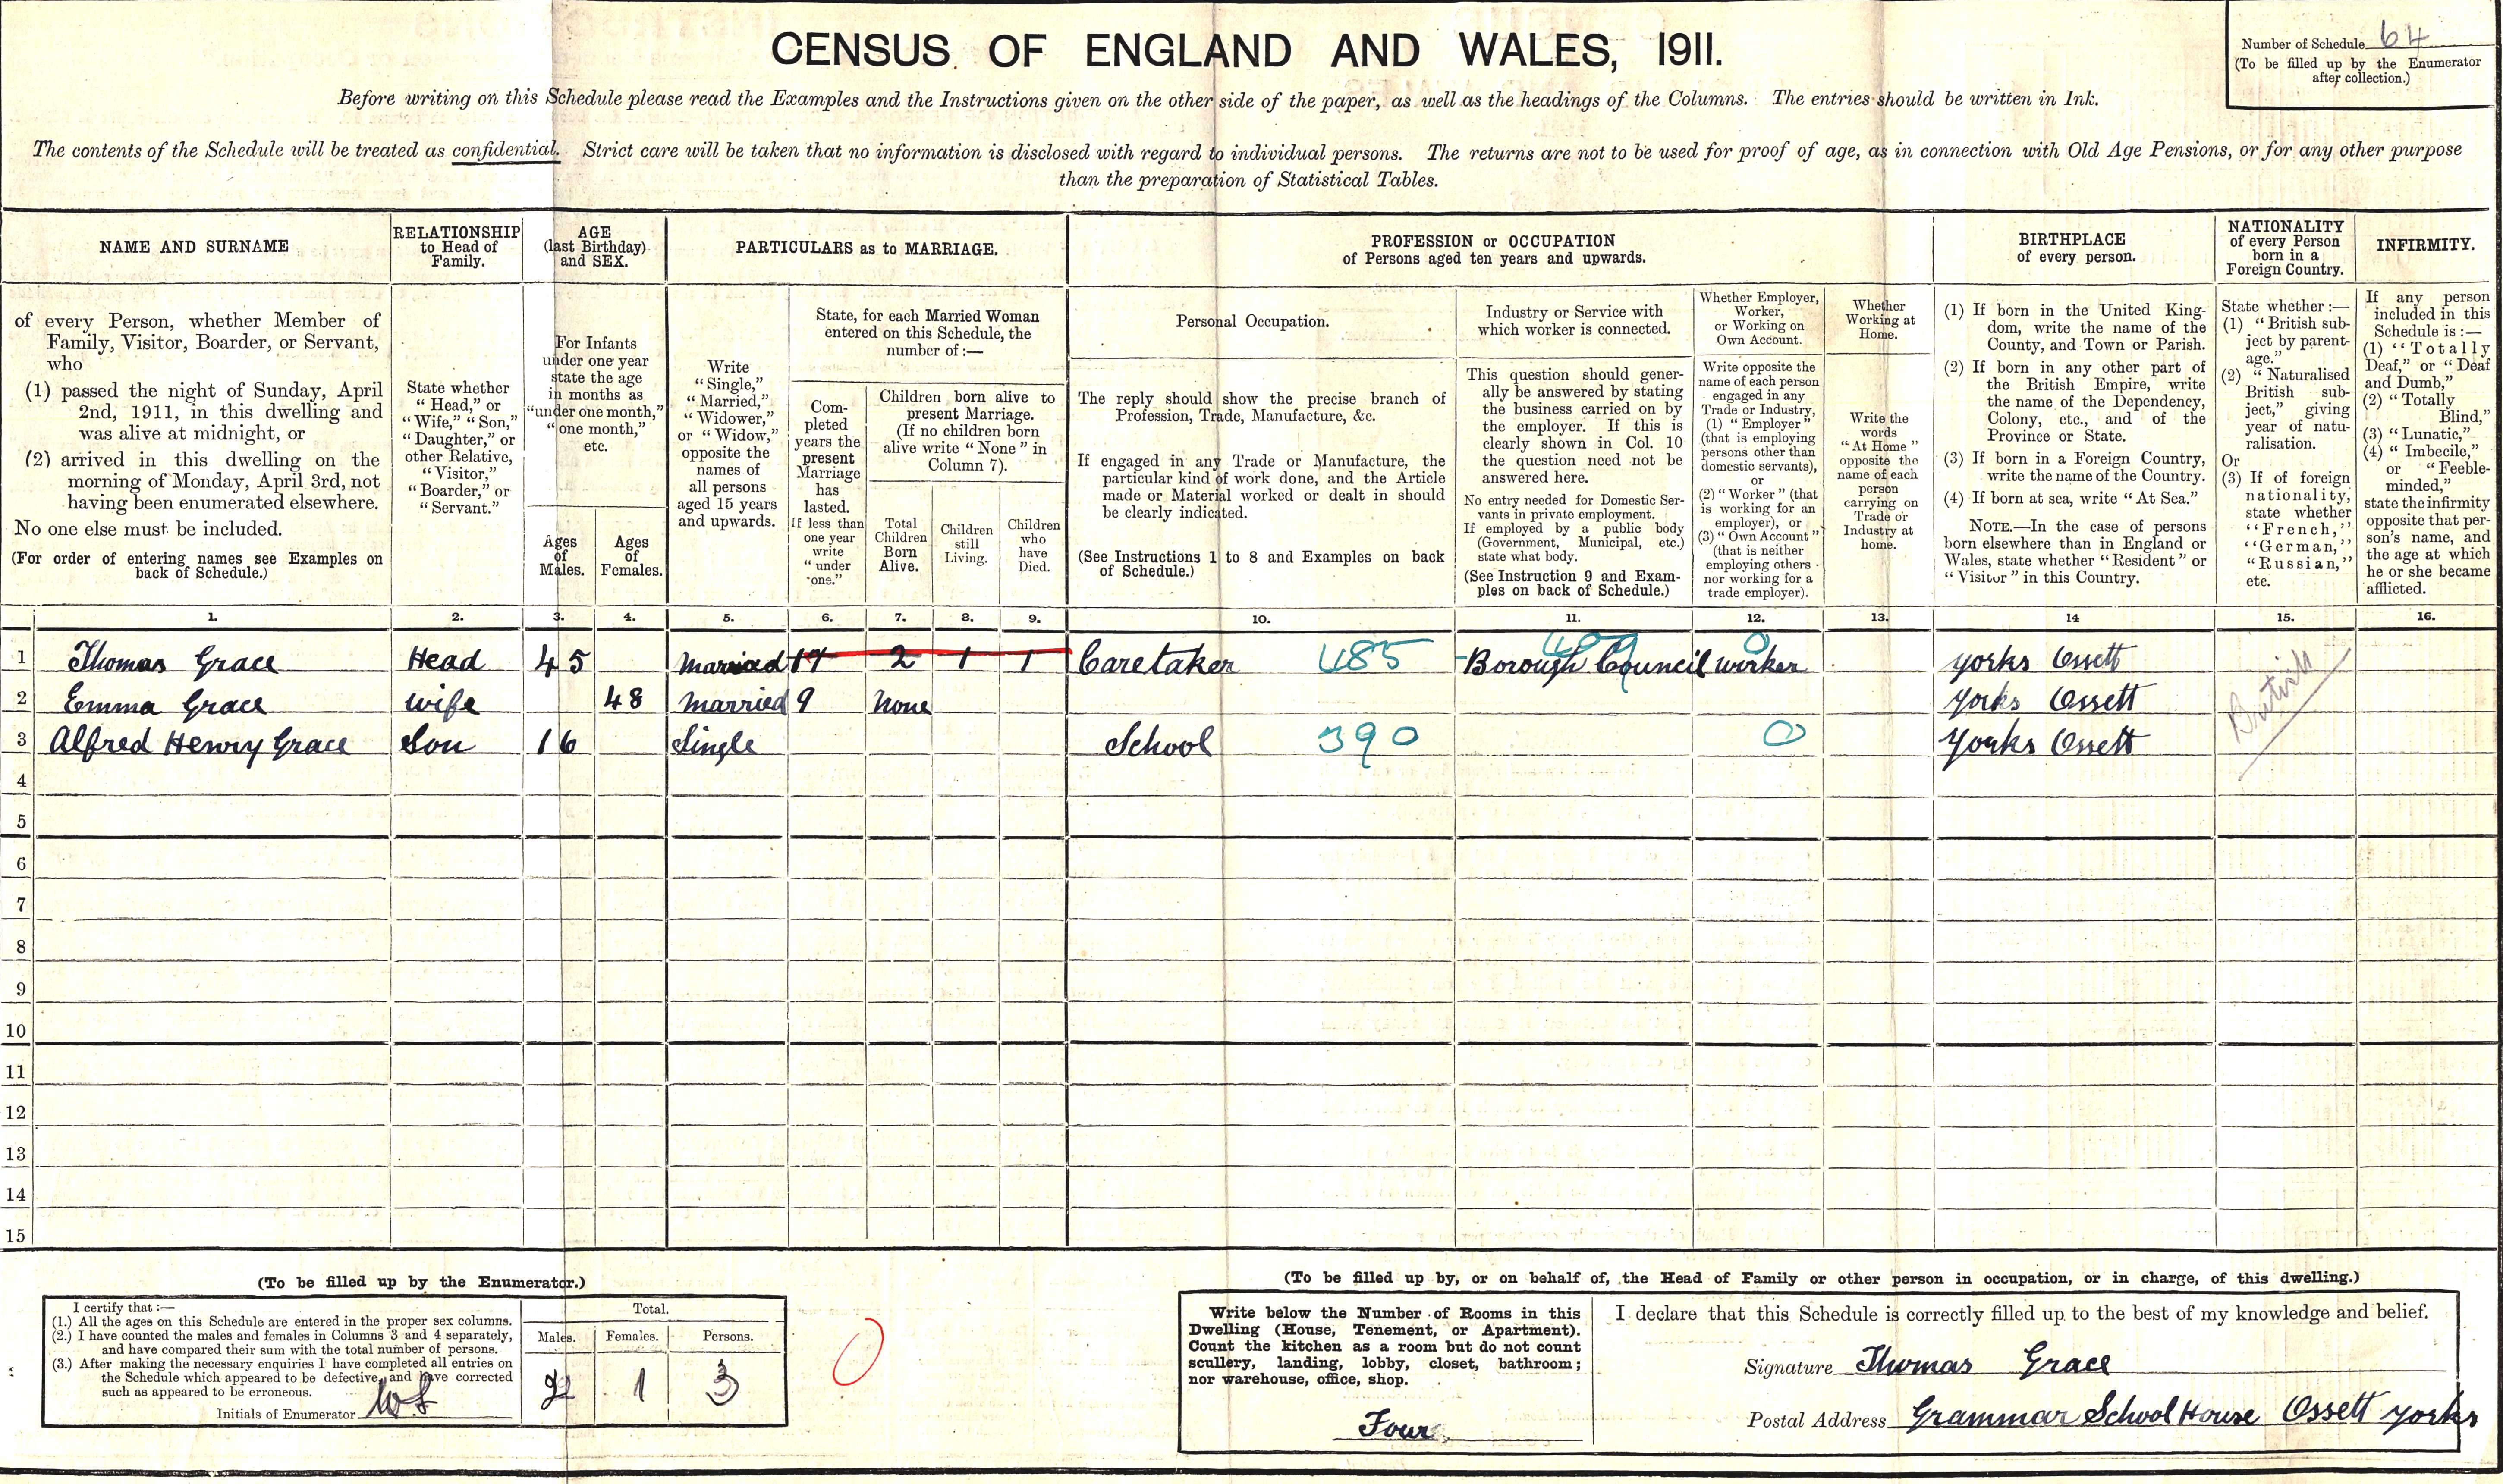 CENSUS OF ENGLAND AND WALES, 1911.
Number of Schedule 64
(To be filled up by the Enumerator
after collection.)
Before writing on this Schedule please read the Examples and the Instructions given on the other side of the paper, as well as the headings of the Columns. The entries should be written in Ink.
The contents of the Schedule will be treated as confidential. Strict care will be taken that no information is disclosed with regard to individual persons. The returns are not to be used for proof of age, as in connection with Old Age Pensions, or for any other purpose
than the preparation of Statistical Tables.
NAME AND SURNAME
of every Person, whether Member of
Family, Visitor, Boarder, or Servant,
who
(1) passed the night of Sunday, April
2nd, 1911, in this dwelling and
was alive at midnight, or
(2) arrived in this dwelling on the
morning of Monday, April 3rd, not
having been enumerated elsewhere.
No one else must be included.
(For order of entering names see Examples on
back of Schedule.)
RELATIONSHIP
to Head of
Family.
State whether
"Head," or
"Wife," "Son,"
"Daughter," or
other Relative,
"Visitor,"
"Boarder," or
"Servant."
AGE
(last Birthday)
and SEX.
For Infants
under one year
state the age
in months as
"under one month,"
"one month,"
etc.
Ages
of
Males.
Ages
of
Females.
PARTICULARS as to MARRIAGE.
Write
"Single,"
"Married,"
"Widower,"
or "Widow,"
opposite the
names of
all persons
aged 15 years
and upwards.
State, for each Married Woman
entered on this Schedule, the
number of :—
Com-
pleted
years the
present
Marriage
has
lasted.
If less than
one year
write
"under
one."
Children born alive to
present Marriage.
(If no children born
alive write "None" in
Column 7).
Total
Children
Born
Alive.
Children
still
Living.
Children
who
have
Died.
PROFESSION or OCCUPATION
of Persons aged ten years and upwards.
Personal Occupation.
The reply should show the precise branch of
Profession, Trade, Manufacture, &c.
If engaged in any Trade or Manufacture, the
particular kind of work done, and the Article
made or Material worked or dealt in should
be clearly indicated.
(See Instructions 1 to 8 and Examples on back
of Schedule.)
Industry or Service with
which worker is connected.
This question should gener-
ally be answered by stating
the business carried on by
the employer. If this is
clearly shown in Col. 10
the question need not be
answered here.
No entry needed for Domestic Ser-
vants in private employment.
If employed by a public body
(Government, Municipal, etc.)
state what body.
(See Instruction 9 and Exam-
ples on back of Schedule.)
Whether Employer,
Worker,
or Working on
Own Account.
Write opposite the
name of each person
engaged in any
Trade or Industry,
(1) "Employer"
(that is employing
persons other than
domestic servants),
or
(2) "Worker" (that
is working for an
employer), or
(3) "Own Account"
(that is neither
employing others
nor working for a
trade employer).
Whether
Working at
Home.
Write the
words
"At Home"
opposite the
name of each
person
carrying on
Trade or
Industry at
home.
BIRTHPLACE
of every person.
(1) If born in the United King-
dom, write the name of the
County, and Town or Parish.
(2) If born in any other part of
the British Empire, write
the name of the Dependency,
Colony, etc., and of the
Province or State.
(3) If born in a Foreign Country,
write the name of the Country.
(4) If born at sea, write "At Sea."
NOTE.—In the case of persons
born elsewhere than in England or
Wales, state whether "Resident" or
"Visitor" in this Country.
NATIONALITY
of every Person
born in a
Foreign Country.
State whether :—
(1) "British sub-
ject by parent-
age."
(2) "Naturalised
British sub-
ject," giving
year of natu-
ralisation.
Or
(3) If of foreign
nationality,
state whether
"French,"
"German,"
"Russian,"
etc.
INFIRMITY.
If any person
included in this
Schedule is :—
(1) "Totally
Deaf," or "Deaf
and Dumb,"
(2) "Totally
Blind,"
(3) "Lunatic,"
(4) "Imbecile,"
or "Feeble-
minded,"
state the infirmity
opposite that per-
son's name, and
the age at which
he or she became
afflicted.
1. 2. 3. 4. 5. 6. 7. 8. 9. 10. 11. 12. 13. 14 15. 16.
1 Thomas Grace Head 45 Married 17 2 1 1 Caretaker 485 Borough Council worker 0 Yorks Ossett
2 Emma Grace wife 48 Married 9 None Yorks Ossett
3 Alfred Henry Grace Son 16 Single School 390 0 Yorks Ossett
British
4
5
6
7
8
9
10
11
12
13
14
15
(To be filled up by the Enumerator.)
I certify that :—
(1.) All the ages on this Schedule are entered in the proper sex columns.
(2.) I have counted the males and females in Columns 3 and 4 separately,
and have compared their sum with the total number of persons.
(3.) After making the necessary enquiries I have completed all entries on
the Schedule which appeared to be defective, and have corrected
such as appeared to be erroneous.
Initials of Enumerator
Total.
Males. Females. Persons.
2 1 3
0
(To be filled up by, or on behalf of, the Head of Family or other person in occupation, or in charge, of this dwelling.)
Write below the Number of Rooms in this
Dwelling (House, Tenement, or Apartment).
Count the kitchen as a room but do not count
scullery, landing, lobby, closet, bathroom;
nor warehouse, office, shop.
Four
I declare that this Schedule is correctly filled up to the best of my knowledge and belief.
Signature Thomas Grace
Postal Address Grammar School House Ossett Yorks